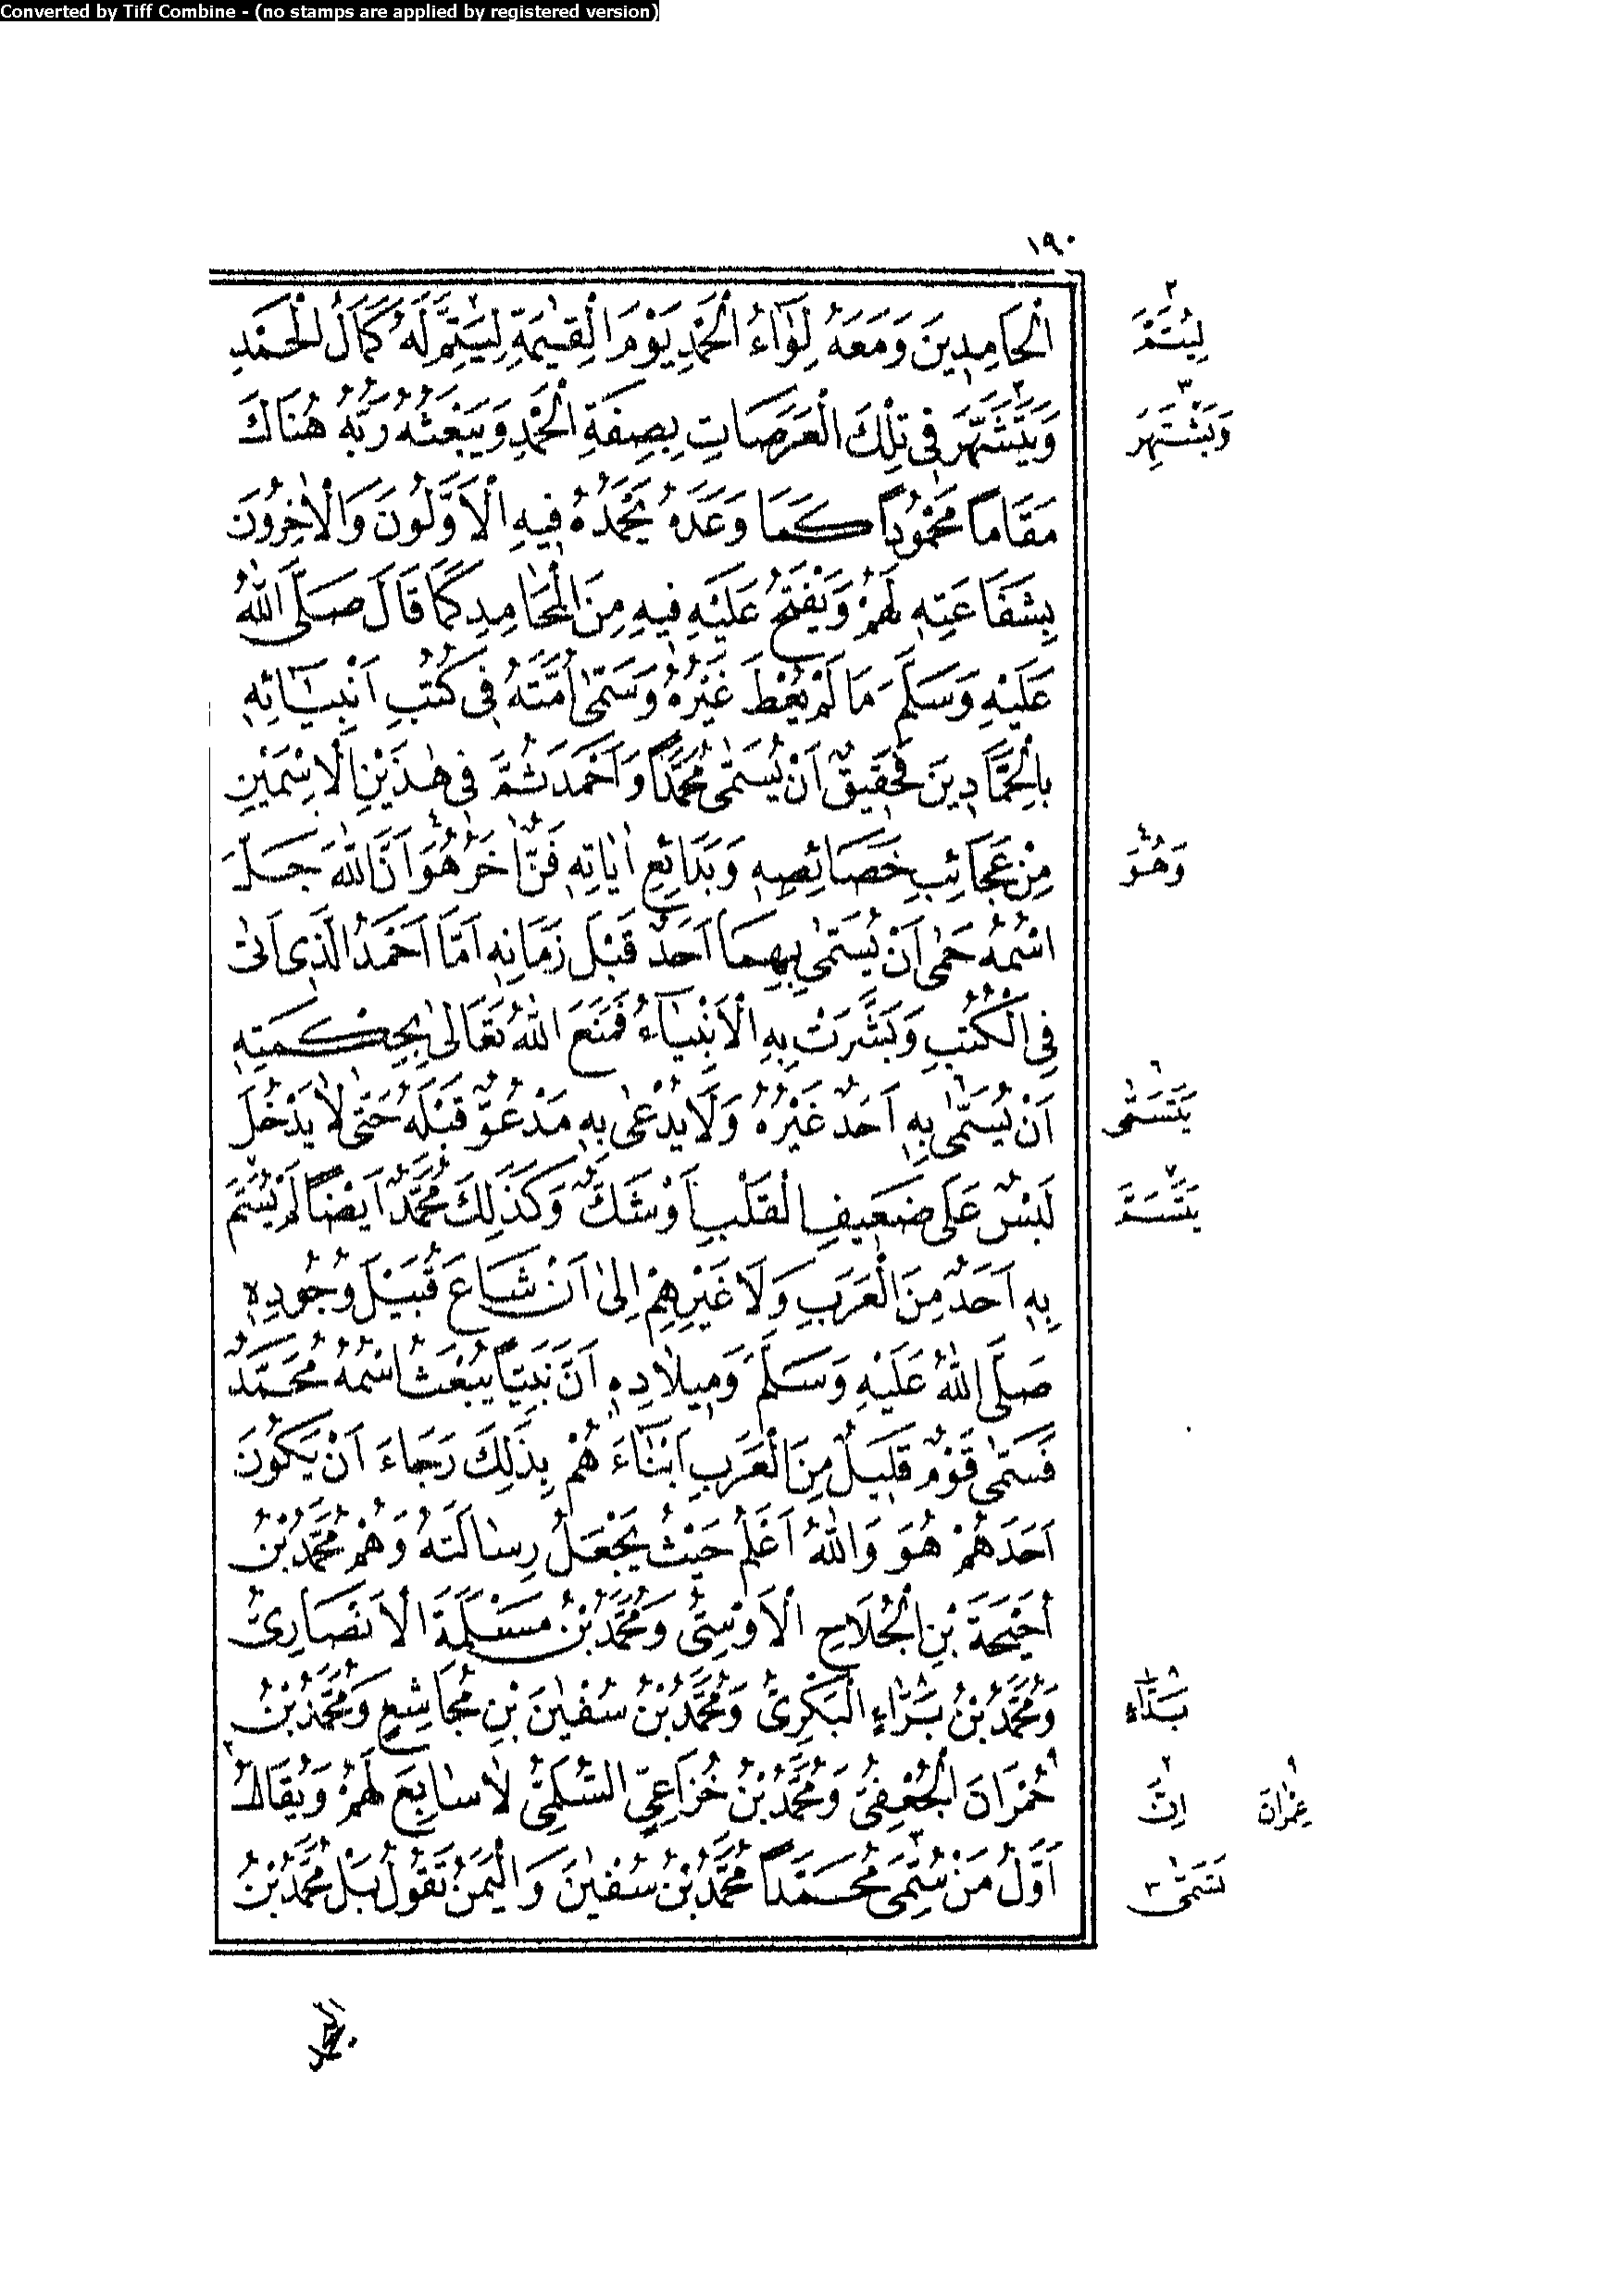 Converted by Tiff Combine - (no stamps are applied by registered version)
١٩٠
اَلْحَامِدِينَ وَمَعَهُ لِوَاءُ الْحَمْدِ يَوْمَ الْقِيٰمَةِ لِيَتِمَّ لَهُ كَمَالُ الْحَمْدِ
وَيَتَشَهَّرَ فِى تِلْكَ الْعَرَصَاتِ بِصِفَةِ الْحَمْدِ وَيَبْعَثُهُ رَبُّهُ هُنَاكَ
مَقَاماً مَحْمُوداً كَمَا وَعَدَهُ يَحْمَدُهُ فِيهِ الْاَوَّلُونَ وَالْاٰخِرُونَ
بِشَفَاعَتِهِ لَهُمْ وَيَفْتَحُ عَلَيْهِ فِيهِ مِنَ الْمَحَامِدِ كَمَا قَالَ صَلَّى اللهُ
عَلَيْهِ وَسَلَّمَ مَا لَمْ يُعْطَ غَيْرُهُ وَسَمّٰى اُمَّتَهُ فِى كُتُبِ اَنْبِيَائِهِ
بِالْحَمَّادِينَ فَحَقِيقٌ اَنْ يُسَمّٰى مُحَمَّداً وَاَحْمَدَ ثُمَّ فِى هٰذَيْنِ الْاِسْمَيْنِ
مِنْ عَجَائِبِ خَصَائِصِهِ وَبَدَائِعِ اٰيَاتِهِ فَنٌّ اٰخَرُ هُوَ اَنَّ اللهَ جَلَّ
اسْمُهُ حَمٰى اَنْ يُسَمّٰى بِهِمَا اَحَدٌ قَبْلَ زَمَانِهِ اَمَّا اَحْمَدُ الَّذِى اَتٰى
فِى الْكُتُبِ وَبَشَّرَتْ بِهِ الْاَنْبِيَاءُ فَمَنَعَ اللهُ تَعَالٰى بِحِكْمَتِهِ
اَنْ يُسَمّٰى بِهِ اَحَدٌ غَيْرُهُ وَلَا يُدْعٰى بِهِ مَدْعُوٌّ قَبْلَهُ حَتّٰى لَا يَدْخُلَ
لَبْسٌ عَلٰى ضَعِيفِ الْقَلْبِ اَوْ شَكٌّ وَكَذٰلِكَ مُحَمَّدٌ اَيْضاً لَمْ يُسَمَّ
بِهِ اَحَدٌ مِنَ الْعَرَبِ وَلَا غَيْرِهِمْ اِلٰى اَنْ شَاعَ قُبَيْلَ وُجُودِهِ
صَلَّى اللهُ عَلَيْهِ وَسَلَّمَ وَمِيلَادِهِ اَنَّ نَبِيّاً يُبْعَثُ اسْمُهُ مُحَمَّدٌ
فَسَمّٰى قَوْمٌ قَلِيلٌ مِنَ الْعَرَبِ اَبْنَاءَ هُمْ بِذٰلِكَ رَجَاءَ اَنْ يَكُونَ
اَحَدُهُمْ هُوَ وَاللهُ اَعْلَمُ حَيْثُ يَجْعَلُ رِسَالَتَهُ وَهُمْ مُحَمَّدُ بْنُ
اُحَيْحَةَ بْنِ الْجُلَاحِ الْاَوْسِىُّ وَمُحَمَّدُ بْنُ مَسْلَمَةَ الْاَنْصَارِىُّ
وَمُحَمَّدُ بْنُ بَرَّاءٍ الْبَكْرِىُّ وَمُحَمَّدُ بْنُ سُفْيٰنَ بْنِ مُجَاشِعٍ وَمُحَمَّدُ بْنُ
حُمْرَانَ الْجُعْفِىُّ وَمُحَمَّدُ بْنُ خُزَاعِىٍّ السُّلَمِىُّ لَا سَابِعَ لَهُمْ وَيُقَالُ
اَوَّلُ مَنْ سُمِّىَ مُحَمَّداً مُحَمَّدُ بْنُ سُفْيٰنَ وَالْيَمَنُ تَقُولُ بَلْ مُحَمَّدُ بْنُ
٢
لِيُتَمَّ
٣
وَيَشْتَهِرَ
٤
وَهُوَ
٦
يَتَسَمّٰى
٧
يَتَسَمَّ
٨
بَدَّاءٍ
٩
عِمْرَانَ
٢
اِنَّ
تَسَمّٰى ٣